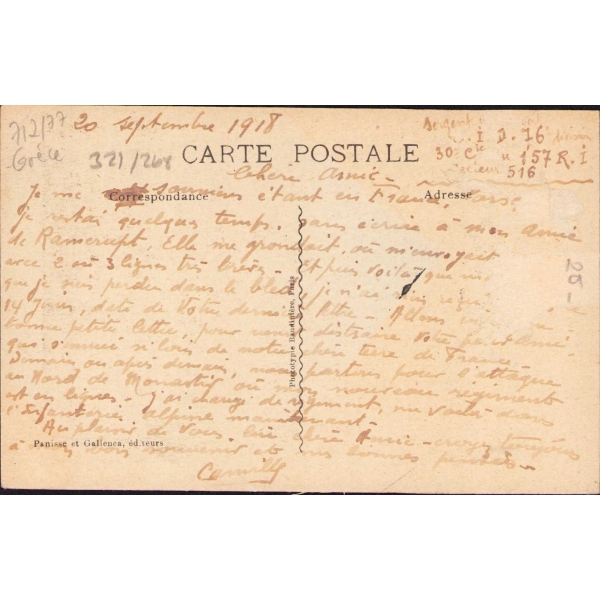 712/77
Grèce
321/268
20 septembre 1918
Sergent
I. D. 76
30e Cie 157 R. I
516
CARTE POSTALE
Chère Amie
Correspondance
Adresse
Je me souviens étant en France,
Je restai quelques temps, sans écrire à mon amie
de Ramerupt. Elle me grondait, ou m'envoyait
avec 2 ou 3 lignes très brèves et puis voilà que
que je suis perdu dans le bled
14 Jours, date de votre dernière lettre. Allons
bonne petite lettre, pour distraire votre petit Ami
qui s'ennuie si loin de notre chère terre de France.
Demain ou après demain, nous partons pour l'attaque
au Nord de Monastir où nos nouveaux régiments
est en lignes. J'ai changé de régiment, me voilà dans
l'Infanterie alpine maintenant.
Au plaisir de vous lire chère Amie, croyez toujours
à mon bon souvenir et mes bonnes pensées.
Camille
Phototypie Baudinière, Paris
Panisse et Gallenca, éditeurs
25 -